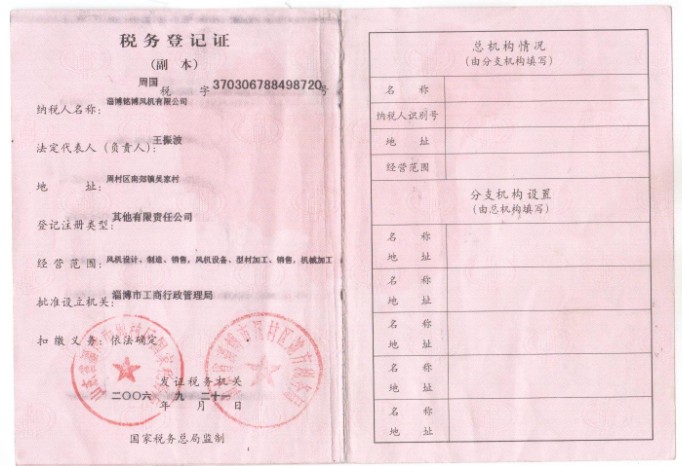 税务登记证
(副 本)
周国税 字 370306788498720号
纳税人名称: 淄博铭博风机有限公司
法定代表人(负责人): 王振波
地 址: 周村区南郊镇吴家村
登记注册类型: 其他有限责任公司
经营范围: 风机设计、制造、销售,风机设备、型材加工、销售,机械加工
批准设立机关: 淄博市工商行政管理局
扣缴义务: 依法确定
发证税务机关
二〇〇六年 九月 二十一日
国家税务总局监制
总机构情况
(由分支机构填写)
名 称
纳税人识别号
地 址
经营范围
分支机构设置
(由总机构填写)
名 称
地 址
名 称
地 址
名 称
地 址
名 称
地 址
名 称
地 址